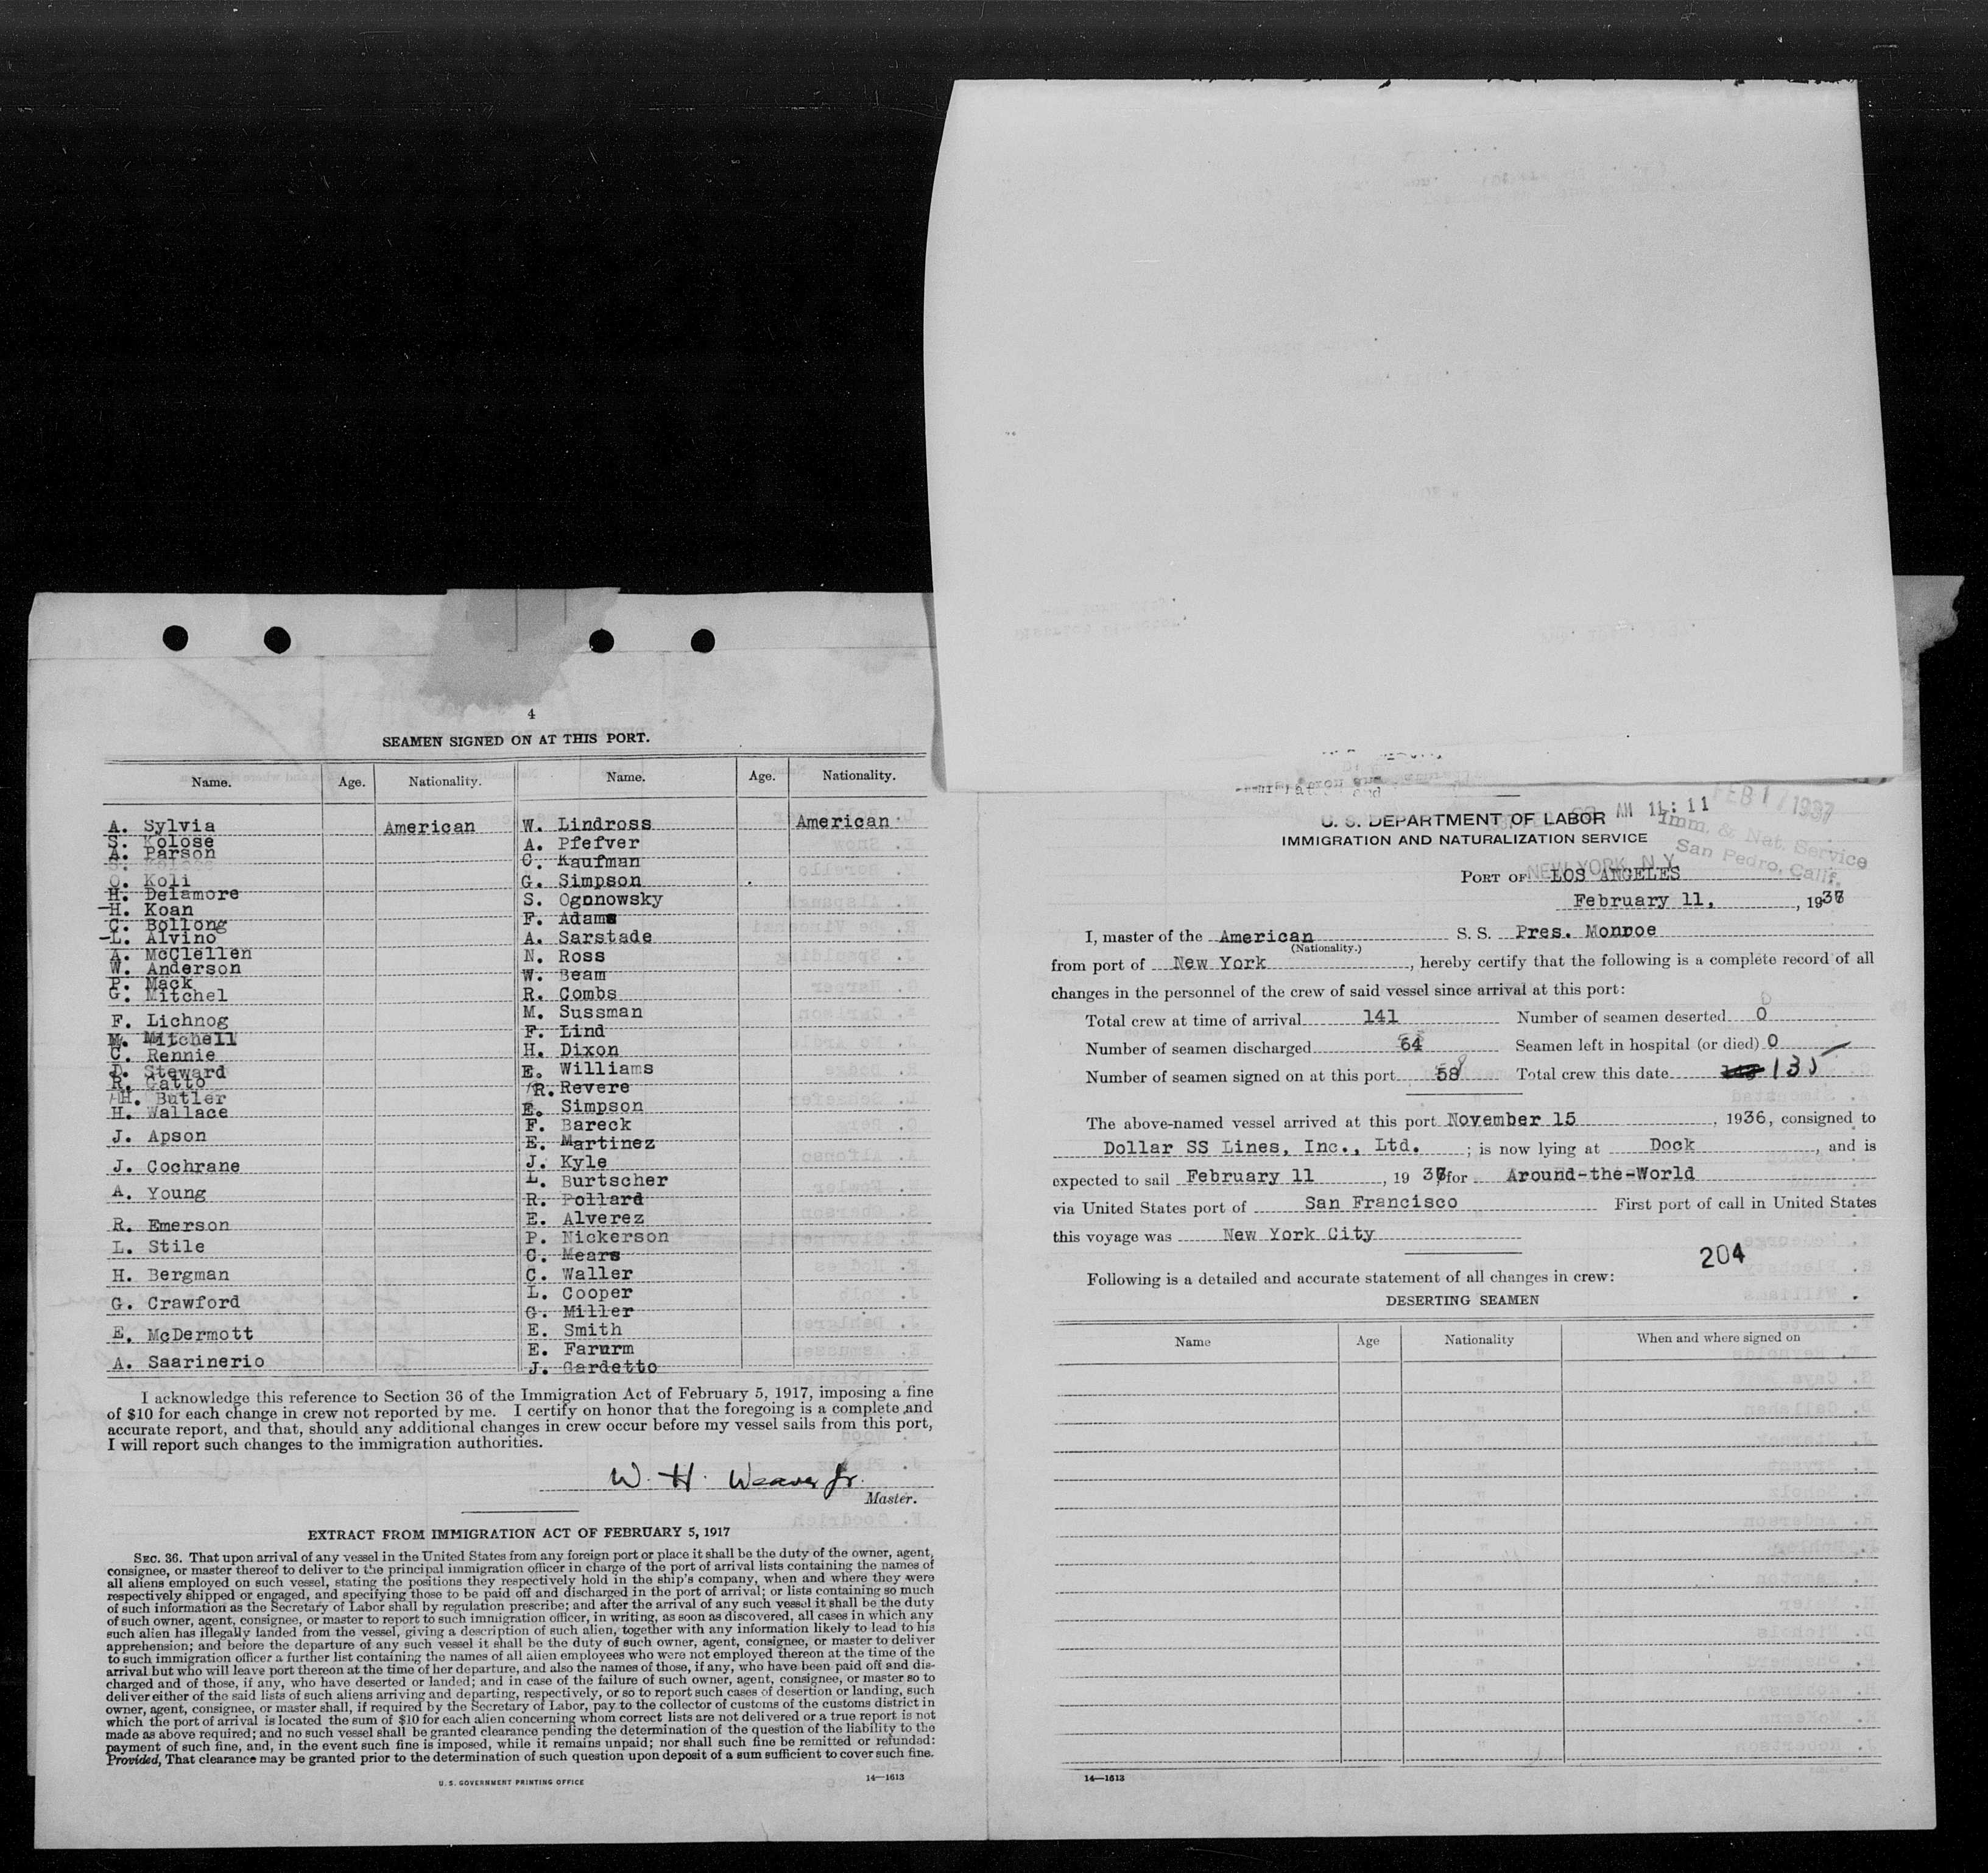 4
SEAMEN SIGNED ON AT THIS PORT.
Name. Age. Nationality. Name. Age. Nationality.
A. Sylvia American W. Lindross American
S. Kolose A. Pfefver
A. Parson C. Kaufman
O. Koli G. Simpson
H. Delamore S. Ogonowsky
H. Koan F. Adams
C. Bollong A. Sarstade
L. Alvino N. Ross
A. McClellen W. Beam
W. Anderson R. Combs
P. Mack M. Sussman
G. Mitchel F. Lind
F. Lichnog H. Dixon
M. Mitchell E. Williams
C. Rennie R. Revere
D. Steward E. Simpson
R. Gatto F. Bareck
H. Butler E. Martinez
H. Wallace J. Kyle
J. Apson L. Burtscher
J. Cochrane R. Pollard
A. Young E. Alverez
R. Emerson P. Nickerson
L. Stile C. Mears
H. Bergman C. Waller
G. Crawford L. Cooper
E. McDermott G. Miller
A. Saarinerio E. Smith
E. Farurm
J. Gardetto
I acknowledge this reference to Section 36 of the Immigration Act of February 5, 1917, imposing a fine
of $10 for each change in crew not reported by me. I certify on honor that the foregoing is a complete and
accurate report, and that, should any additional changes in crew occur before my vessel sails from this port,
I will report such changes to the immigration authorities.
W. H. Weaver Jr.
Master.
EXTRACT FROM IMMIGRATION ACT OF FEBRUARY 5, 1917
SEC. 36. That upon arrival of any vessel in the United States from any foreign port or place it shall be the duty of the owner, agent,
consignee, or master thereof to deliver to the principal immigration officer in charge of the port of arrival lists containing the names of
all aliens employed on such vessel, stating the positions they respectively hold in the ship's company, when and where they were
respectively shipped or engaged, and specifying those to be paid off and discharged in the port of arrival; or lists containing so much
of such information as the Secretary of Labor shall by regulation prescribe; and after the arrival of any such vessel it shall be the duty
of such owner, agent, consignee, or master to report to such immigration officer, in writing, as soon as discovered, all cases in which any
such alien has illegally landed from the vessel, giving a description of such alien, together with any information likely to lead to his
apprehension; and before the departure of any such vessel it shall be the duty of such owner, agent, consignee, or master to deliver
to such immigration officer a further list containing the names of all alien employees who were not employed thereon at the time of the
arrival but who will leave port thereon at the time of her departure, and also the names of those, if any, who have been paid off and dis-
charged and of those, if any, who have deserted or landed; and in case of the failure of such owner, agent, consignee, or master so to
deliver either of the said lists of such aliens arriving and departing, respectively, or so to report such cases of desertion or landing, such
owner, agent, consignee, or master shall, if required by the Secretary of Labor, pay to the collector of customs of the customs district in
which the port of arrival is located the sum of $10 for each alien concerning whom correct lists are not delivered or a true report is not
made as above required; and no such vessel shall be granted clearance pending the determination of the question of the liability to the
payment of such fine, and, in the event such fine is imposed, while it remains unpaid; nor shall such fine be remitted or refunded:
Provided, That clearance may be granted prior to the determination of such question upon deposit of a sum sufficient to cover such fine.
U. S. GOVERNMENT PRINTING OFFICE 14—1613
AM 11:11 FEB 1 1937
U. S. DEPARTMENT OF LABOR
IMMIGRATION AND NATURALIZATION SERVICE
Imm. & Nat. Service
San Pedro, Calif.
NEW YORK, N.Y.
PORT OF LOS ANGELES
February 11, , 1937
I, master of the American S. S. Pres. Monroe
(Nationality.)
from port of New York , hereby certify that the following is a complete record of all
changes in the personnel of the crew of said vessel since arrival at this port:
Total crew at time of arrival 141 Number of seamen deserted 0
Number of seamen discharged 64 Seamen left in hospital (or died) 0
Number of seamen signed on at this port 58 Total crew this date 135
The above-named vessel arrived at this port November 15 , 1936, consigned to
Dollar SS Lines, Inc., Ltd. ; is now lying at Dock , and is
expected to sail February 11 , 1937, for Around-the-World
via United States port of San Francisco First port of call in United States
this voyage was New York City
204
Following is a detailed and accurate statement of all changes in crew:
DESERTING SEAMEN
Name Age Nationality When and where signed on
14—1613